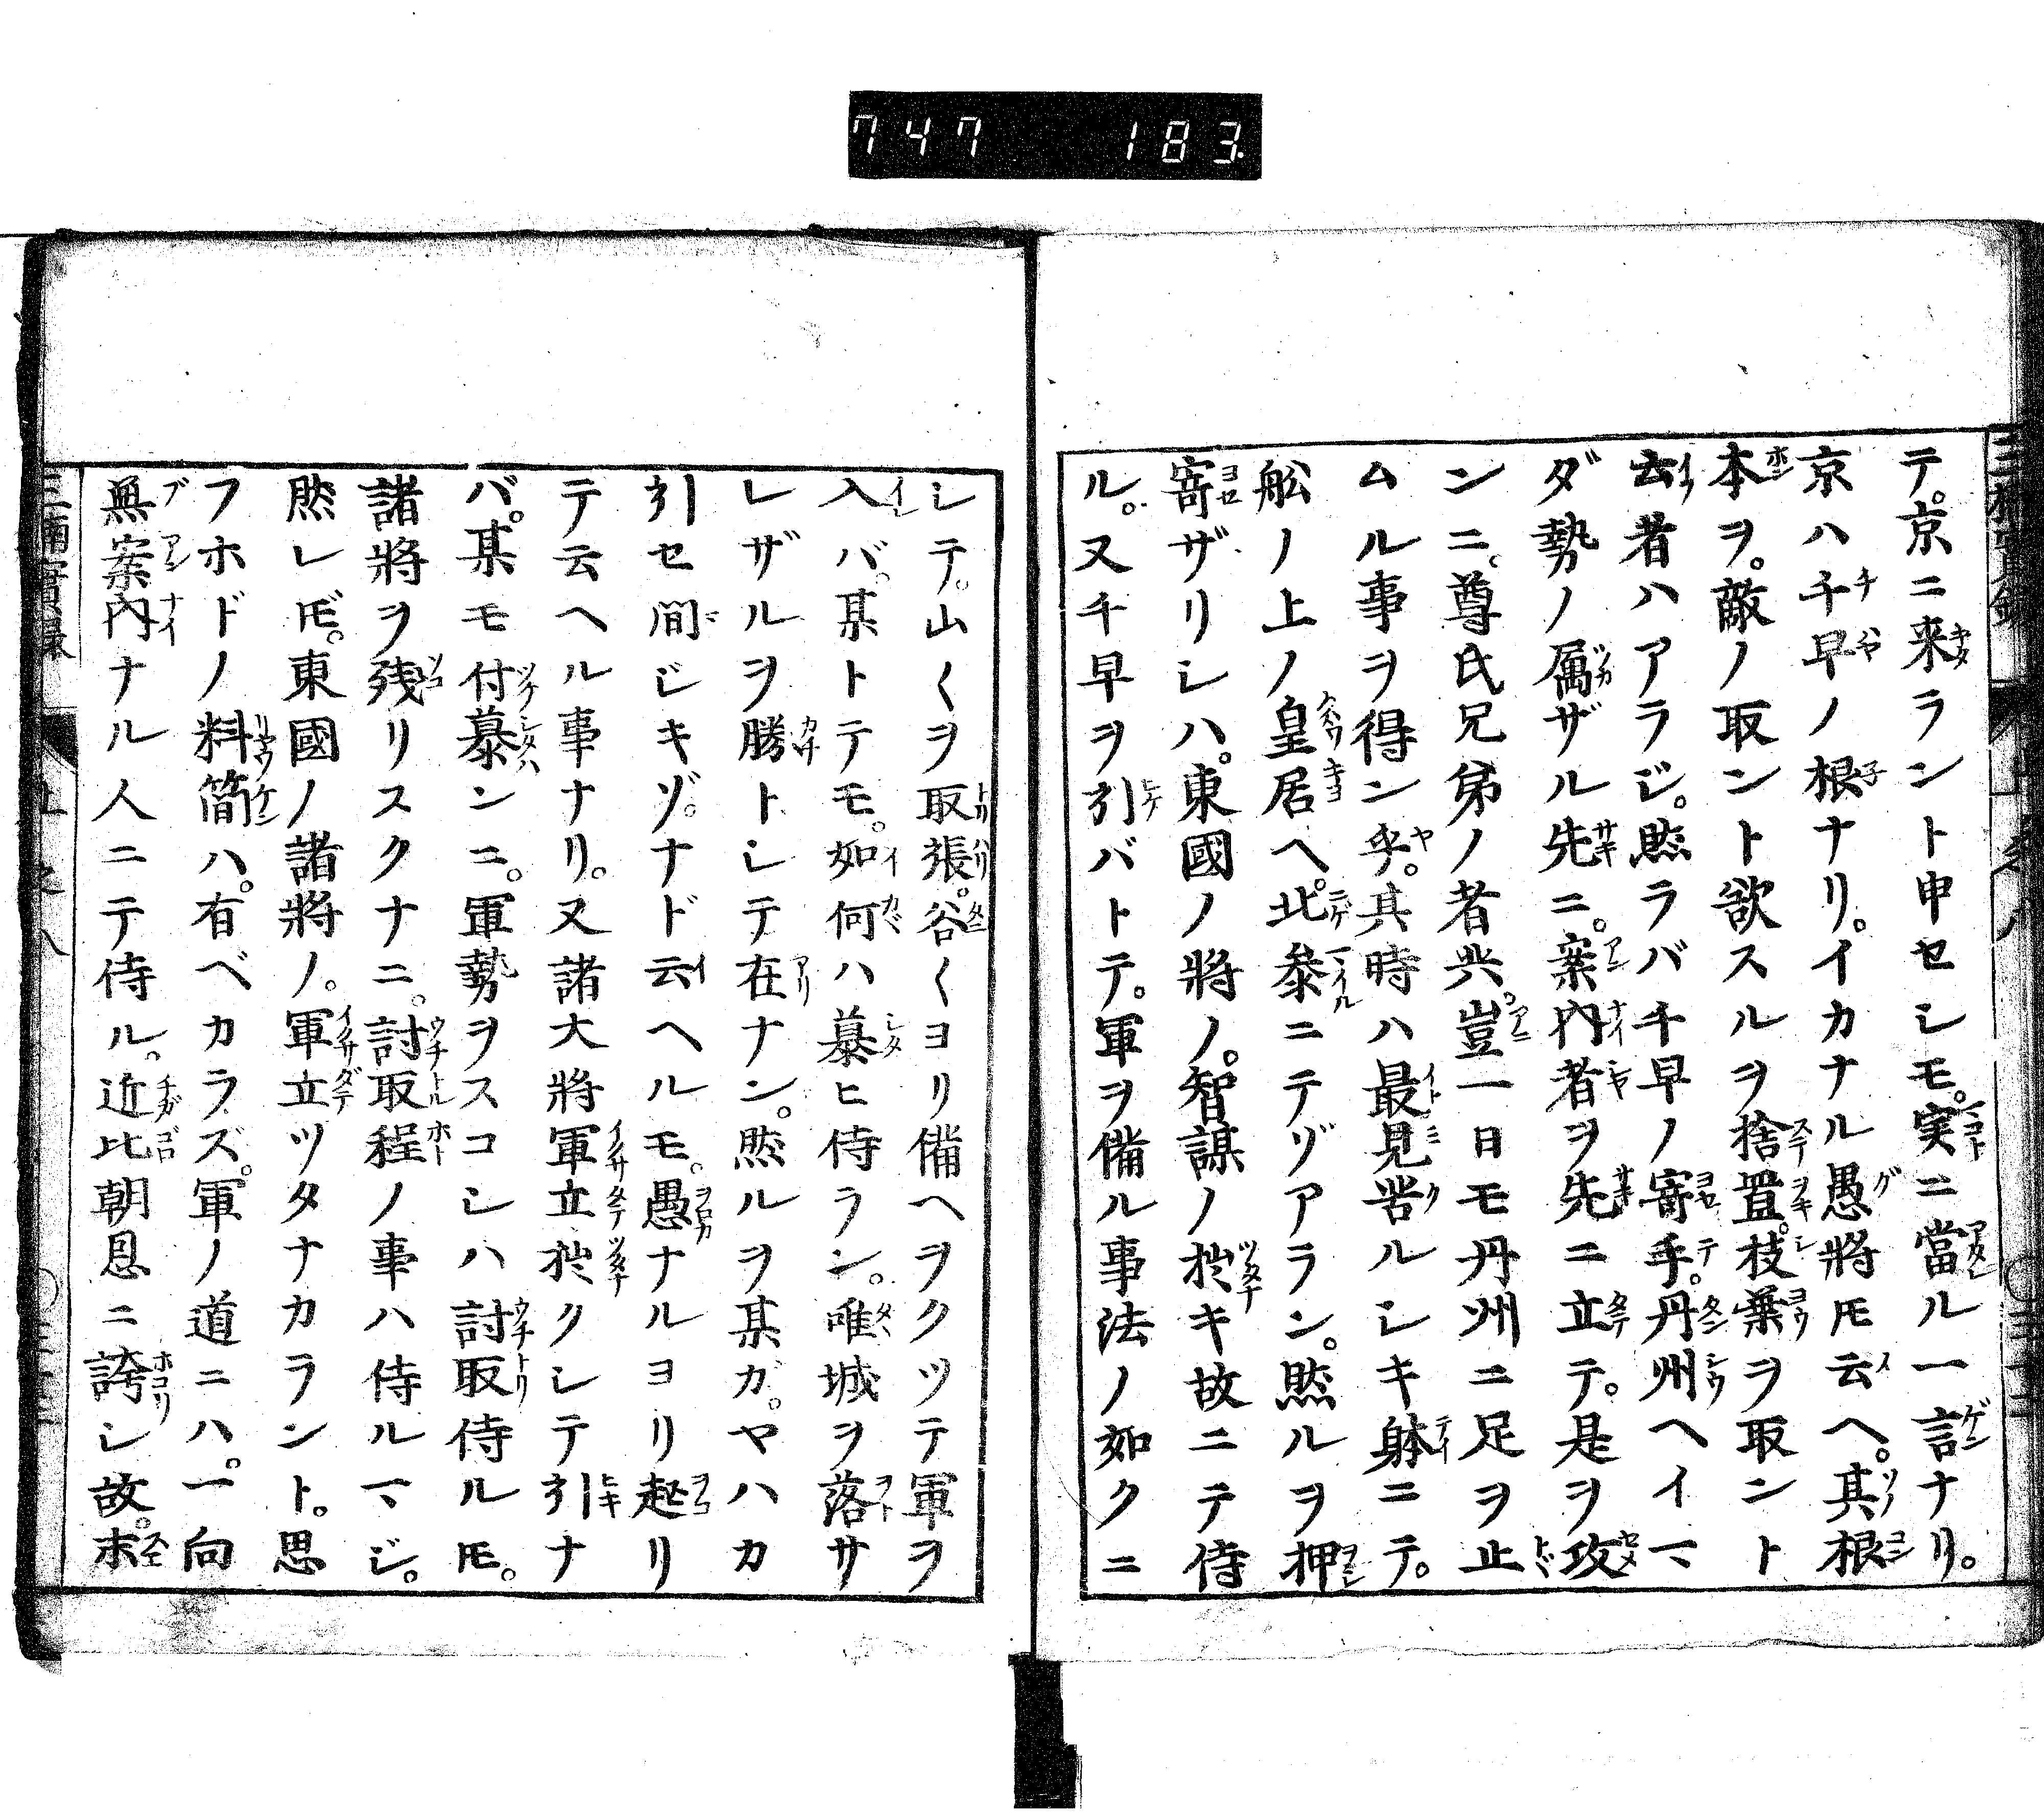 747 183.
テ。京ニ来ラント申セシモ。実ニ當ル一言ナリ。
京ハ千早ノ根ナリ。イカナル愚將モ云ヘ。其根
本ヲ。敵ノ取ント欲スルヲ捨置。枝葉ヲ取ント
云者ハアラジ。然ラバ千早ノ寄手。丹州ヘイマ
ダ勢ノ属ザル先ニ。案内者ヲ先ニ立テ。是ヲ攻
ンニ。尊氏兄弟ノ者共。豈一日モ丹州ニ足ヲ止
ムル事ヲ得ン乎。其時ハ最見苦ルシキ躰ニテ。
舩ノ上ノ皇居ヘ。北参ニテゾアラン。然ルヲ押
寄ザリシハ。東國ノ將ノ。智謀ノ拙キ故ニテ侍
ル。又千早ヲ引バトテ。軍ヲ備ル事法ノ如クニ
シテ。山〱ヲ取張。谷〱ヨリ備ヘヲクツテ軍ヲ
入バ。某トテモ。如何ハ慕ヒ侍ラン。唯城ヲ落サ
レザルヲ勝トシテ在ナン。然ルヲ某ガ。ヤハカ
引セ間ジキゾ。ナド云ヘルモ。愚ナルヨリ起リ
テ云ヘル事ナリ。又諸大將軍立拙クシテ引ナ
バ。某モ付慕ンニ。軍勢ヲスコシハ討取侍ルモ。
諸將ヲ残リスクナニ。討取程ノ事ハ侍ルマジ。
然レ𪜈。東國ノ諸將ノ。軍立ツタナカラント。思
フホドノ料簡ハ。有ベカラズ。軍ノ道ニハ。一向
無案内ナル人ニテ侍ル。近比朝恩ニ誇シ故。末